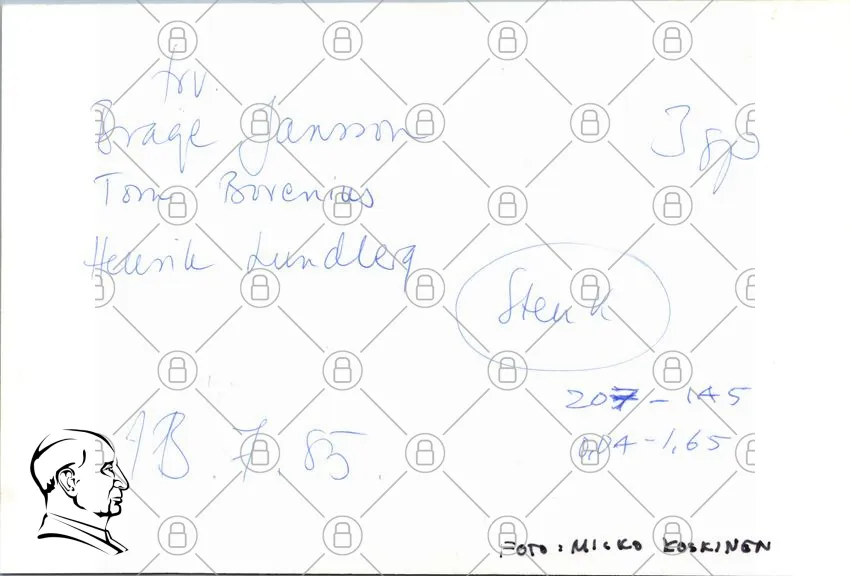 frv.
Brage Jansson
3 sp
Tom Borenius
Henrik Lundberg
Sten k
207 - 145
0,04 - 1,65
7. 85.
FOTO: MICKO KOSKINEN